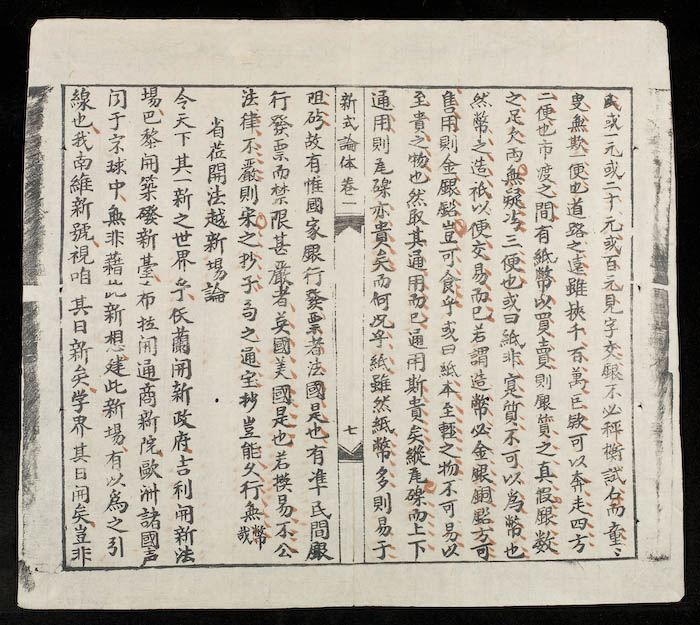 或一元或二十元或百元見字交銀不必秤衡試石而童〻
叟無欺一便也道路之遠雖挾千百萬巨款可以奔走四方
二便也市渡之間有紙幣以買賣則銀質之真假銀數
之足欠両無疑也三便也或曰紙非寔質不可以為幣也
然幣之造祗以便交易而已若謂造幣必金銀銅鉛方可
售用則金銀鉛豈可食乎或曰紙本至輕之物不可易以
至貴之物也然取其通用而已通用斯貴矣縱瓦礫而上下
通用則瓦礫亦貴矣而何况乎紙雖然紙幣多則易于
新式論体 卷一
七
阻碍故有惟國家銀行發票者法國是也有准民間銀
行發票而禁限甚嚴者英國美國是也若換易不公
法律不嚴則宋之抄子 之通宝抄豈能久行無幣哉
省莅開法越新場論
今天下其一新之世界乎 依蘭開新政府吉利開新法
場巴黎開築礮新臺 布拉開通商新院歐洲諸國声
闻于寰球中無非藉此新想建此新場有以為之引
線也我南維新號視咱 其日新矣学界其日開矣豈非